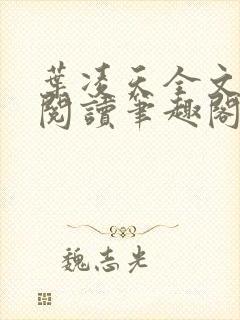 葉凌天全文
閱讀筆趣閣
魏志光